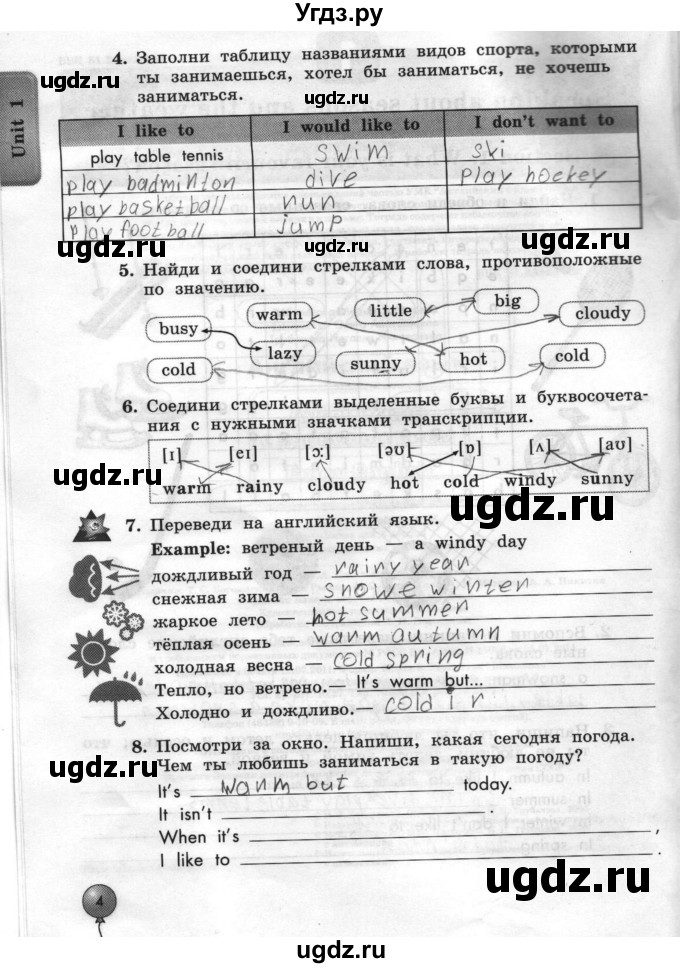 Угдз.ру
4. Заполни таблицу названиями видов спорта, которыми
ты занимаешься, хотел бы заниматься, не хочешь
заниматься.
ugdz.ru
ugdz.ru
Unit 1
I like to I would like to I don't want to
play table tennis swim ski
play badminton dive play hockey
play basketball run
play football jump
ugdz.ru
ugdz.ru
5. Найди и соедини стрелками слова, противоположные
по значению.
busy warm little big cloudy
cold lazy sunny hot cold
6. Соедини стрелками выделенные буквы и буквосочета-
ния с нужными значками транскрипции.
[ɪ] [eɪ] [ɔː] [əʊ] [ɒ] [ʌ] [aʊ]
warm rainy cloudy hot cold windy sunny
ugdz.ru
ugdz.ru
7. Переведи на английский язык.
Example: ветреный день — a windy day
дождливый год — rainy year
снежная зима — snowe winter
жаркое лето — hot summer
тёплая осень — warm autumn
холодная весна — cold spring
Тепло, но ветрено. — It's warm but...
Холодно и дождливо. — cold i r
ugdz.ru
ugdz.ru
8. Посмотри за окно. Напиши, какая сегодня погода.
Чем ты любишь заниматься в такую погоду?
It's warm but today.
It isn't .
When it's ,
I like to .
ugdz.ru
ugdz.ru
4
ugdz.ru